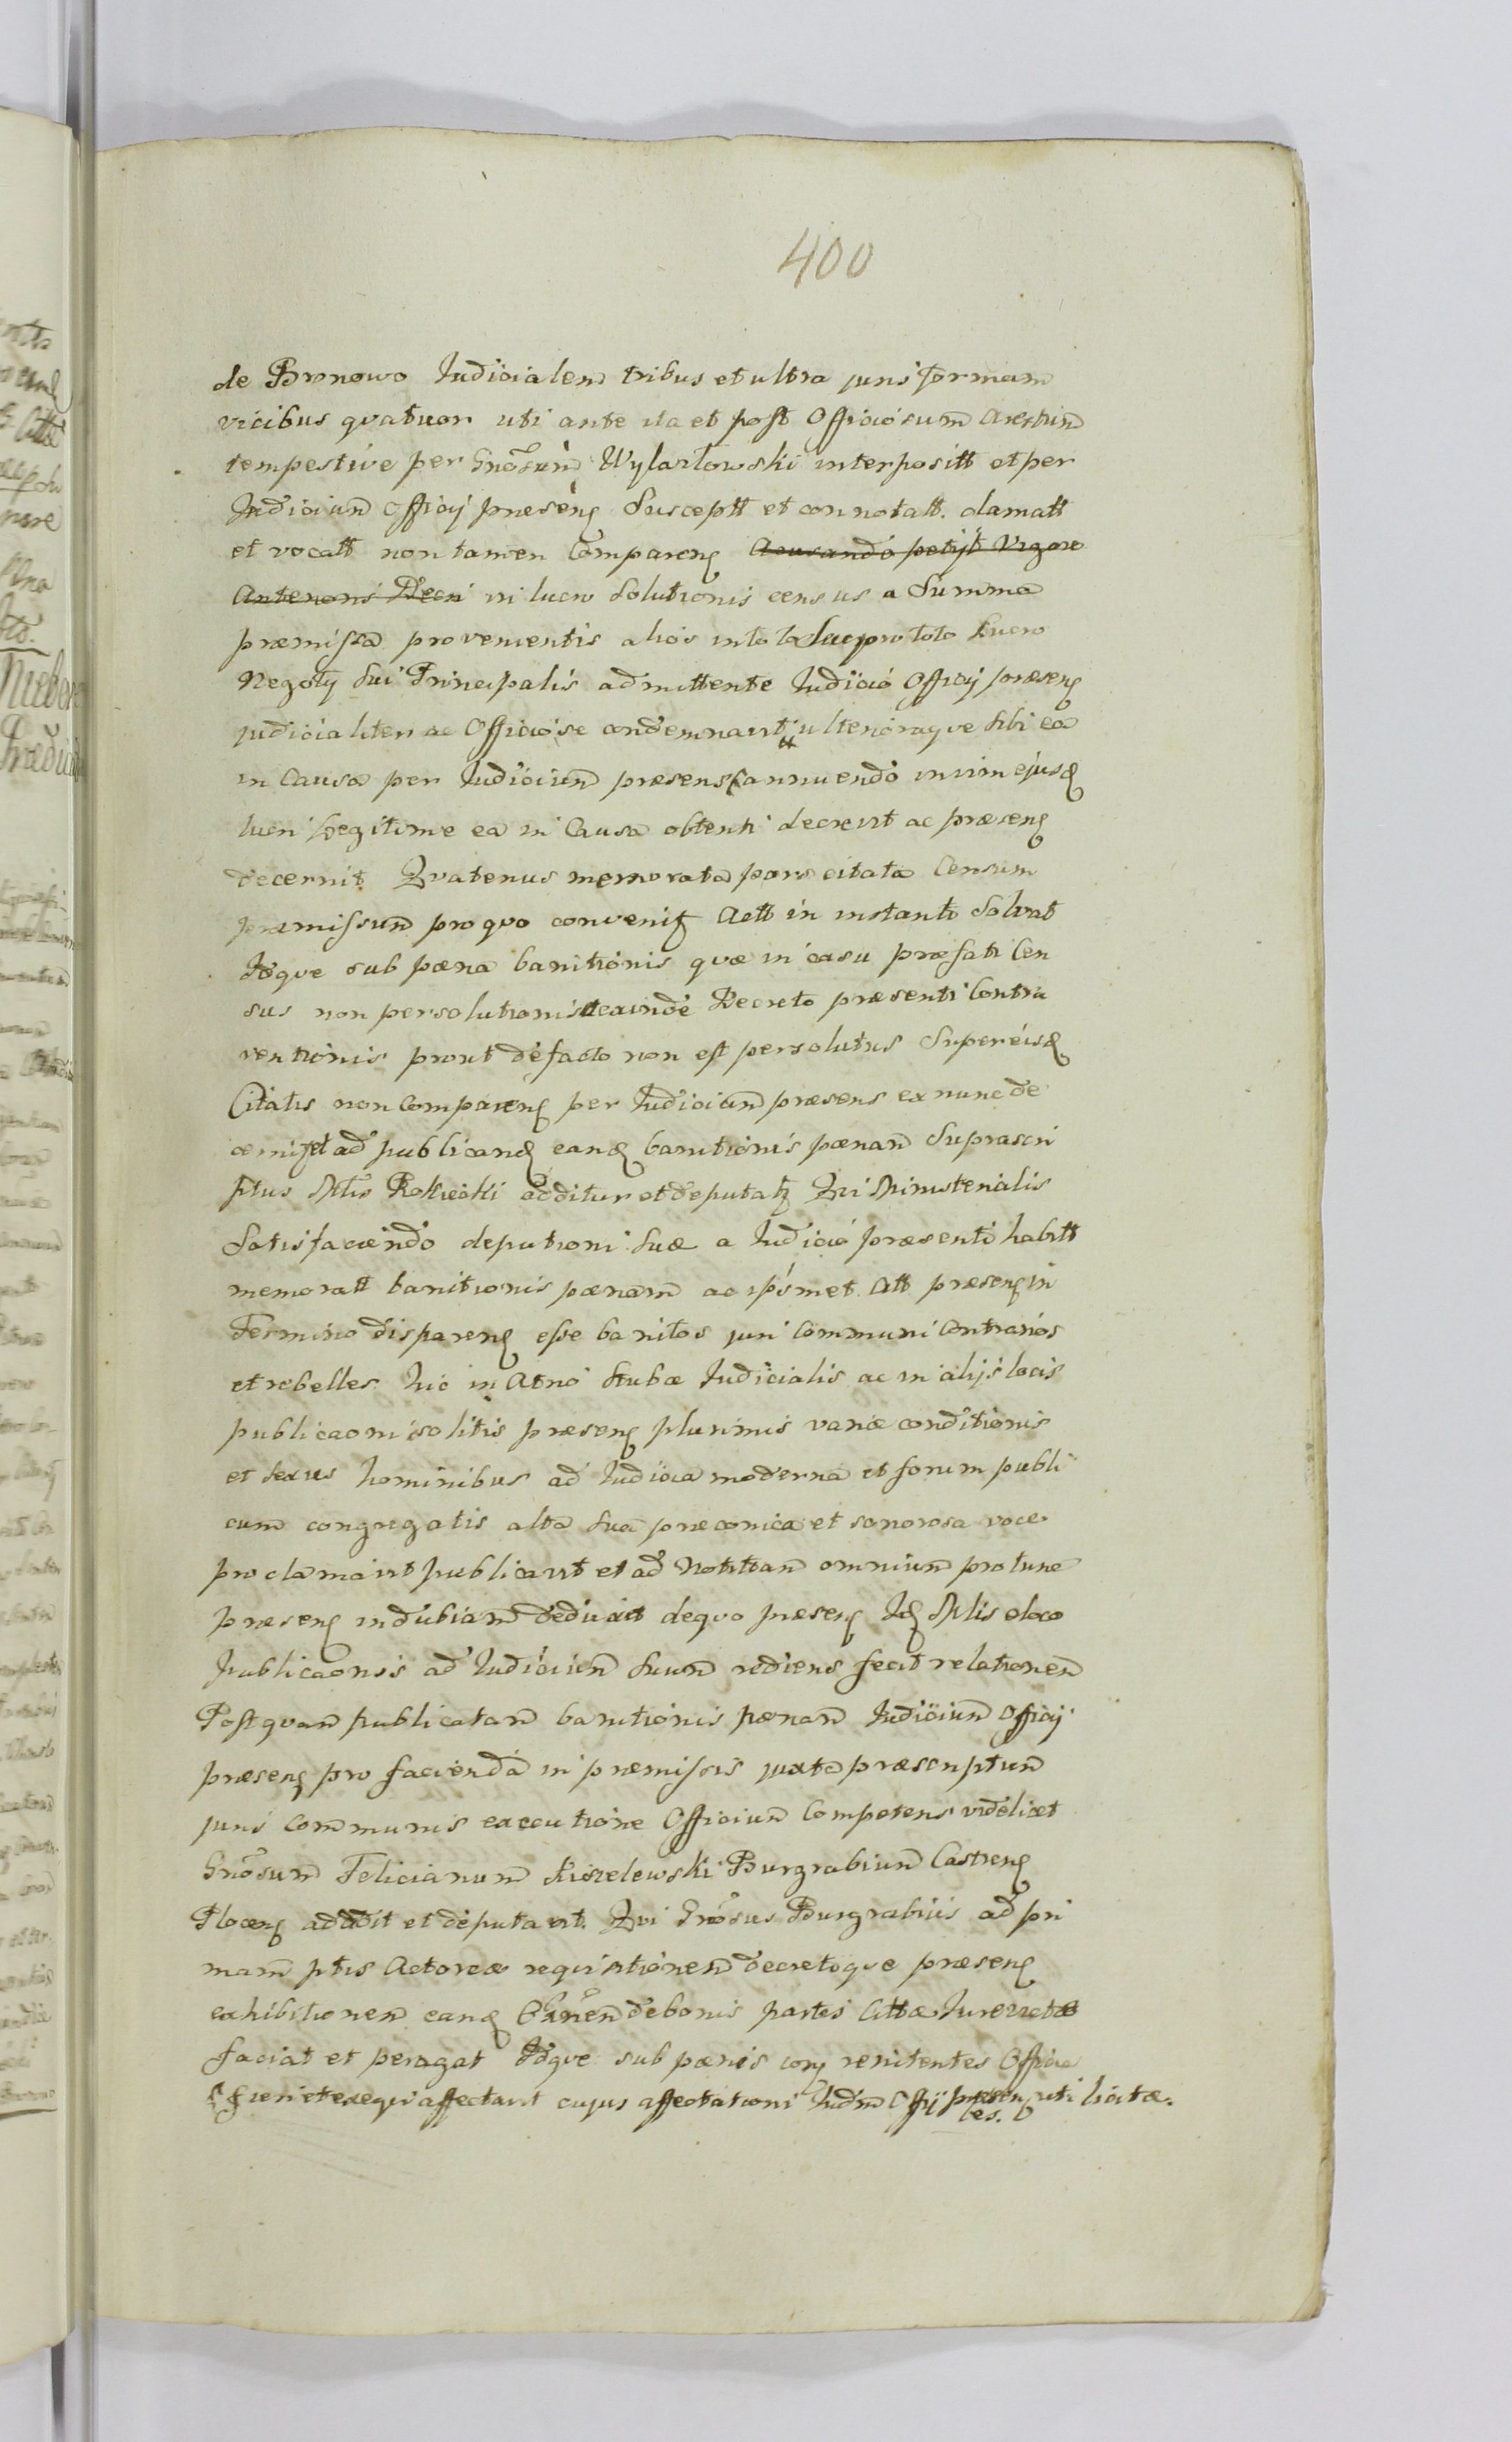 400
de Bronowo Judicialem tribus et ultra juris formam
vicibus qvatuor uti ante ita et post Officiosum Arestum
tempestive per Gnosum Wylazłowski interpositt et per
Judicium Officij præsens Susceptt et connotatt. clamatt
et vocatt non tamen Comparens Acusando petijt Vigore
Anterioris Decri in lucro Solutionis census a Summa
præmissa provenientis alias in toto Lucro toto Lucro
Negotij Sui Principalis admittente Judicio Officij præsens
judicialiter ac Officiose condemnavit ulterioraqve sibi ea
in Causa per Judicium præsens annuendo in vim ejusd
lucri legitime ea in Causa obtenti decrevit ac præsens
decernit Qvatenus memorata pars citata Censum
præmissum pro qvo convenitz Actt in instanti Solvat
Idqve sub pæna banitionis qvæ in casu præfati Cen
sus non persolutionis et exinde Decreto præsenti Contra
ventionis prout de facto non est persolutus Super eisd
Citatis non Comparens per Judicium præsens ex nunc de
cernitz et ad publicand eand banitionis pænam Suprascri
ptus Mtlis Rokicki additur et deputatz Qvi Ministerialis
Satisfaciendo deputtioni Suæ a Judicio præsenti habitt
memoratt banitionis pænam ac ipsmet Citt præsens in
Termino disparens esse banitos juri communi Contrarios
et rebelles hic in Atrio Stubæ Judicialis ac in alijs locis
publicaoni solitis præsens plurimis variæ conditionis
et sexus hominibus ad Judicia moderna et forum publi
cum congregatis alta Sua præconica et sonorosa voce
proclamavit publicavit et ad Notitiam omnium pro tunc
præsens indubiam deduxit de qvo præsens Id Mtlis e loco
Publicaonis ad Judicium Suum rediens fecit relationem
Post qvam publicatam banitionis pænam Judicium Officij
præsens pro facienda in præmissis juxta præscriptum
juris Communis executione Officium Competens videlicet
Gnosum Felicianum Kiszelewski Burgrabium Castrens
Plocens addidit et deputavit Qvi Gnosus Burgrabius ad pri
mam ptis Actoreæ reqvisitionem decretoqve præsens
exhibitionem eand Exnem de bonis partis Cittæ Jure victæ
faciat et peragat Idqve sub pænis contra renitentes Officia
fieri et exeqvi affectavit cujus affectationi Judm Offij præsens uti licitæ.